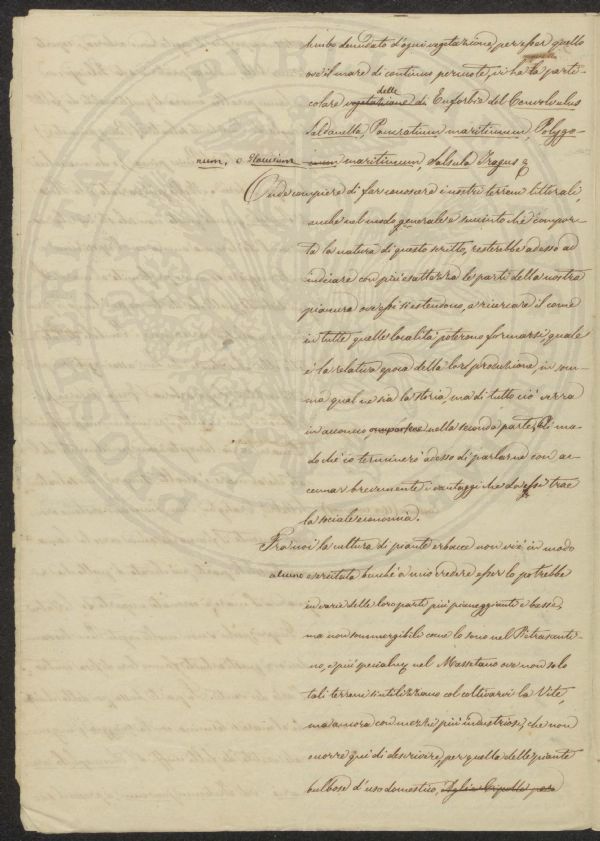 lembo denudato d'ogni vegetazione, per esser quello
ove il mare di continuo percuote, vi ha la parti-
colare vegetazione di delle Euforbia del Convolvulus
Soldanella, Pancratium maritimum, Polygo-
num, e Glaucium inum maritimum, Salsola Tragus &
Onde compiere di far conoscere i nostri terreni littorali,
anche nel modo generale e succinto che compor-
ta la natura di questo scritto, resterebbe adesso ad
indicare con più esattezza le parti della nostra
pianura ove essi si estendono, e ricercare il come
in tutte quelle località poterono formarsi, quale
è la relativa epoca della loro produzione, in som-
ma qual ne sia la storia, ma di tutto ciò verrà
in acconcio nella seconda parte, Di mo-
do chè io terminerò adesso di parlarne con ac-
cennar brevemente i vantaggi che da essi trae
la sociale economia.
Frà noi la cultura di piante erbacee non vi è in modo
alcuno esercitata benchè a mio credere esser lo potrebbe
in varie delle loro parti più pianeggianti e basse,
ma non sommergibili come lo sono nel Pietrasanti-
no, e più specialmte nel Massetano ove non solo
tali terreni si utilizzano col coltivarvi la Vite,
ma ancora con mezzi più industriosi, che non
occorre qui di descrivere, per quella delle piante
bulbose d'uso domestico, Aglio Cipolle